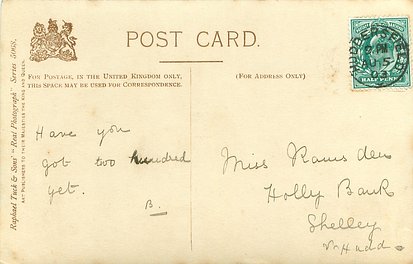 POST CARD.
FOR POSTAGE, IN THE UNITED KINGDOM ONLY,
THIS SPACE MAY BE USED FOR CORRESPONDENCE.
(FOR ADDRESS ONLY)
Raphael Tuck & Sons' "Real Photograph" Series
ART PUBLISHERS TO THEIR MAJESTIES THE KING AND QUEEN.
HUDDERSFIELD
PM
03
HALF PENNY
Have you
got two hundred
yet.
B.
Miss Ramsden
Holly Bank
Shelley